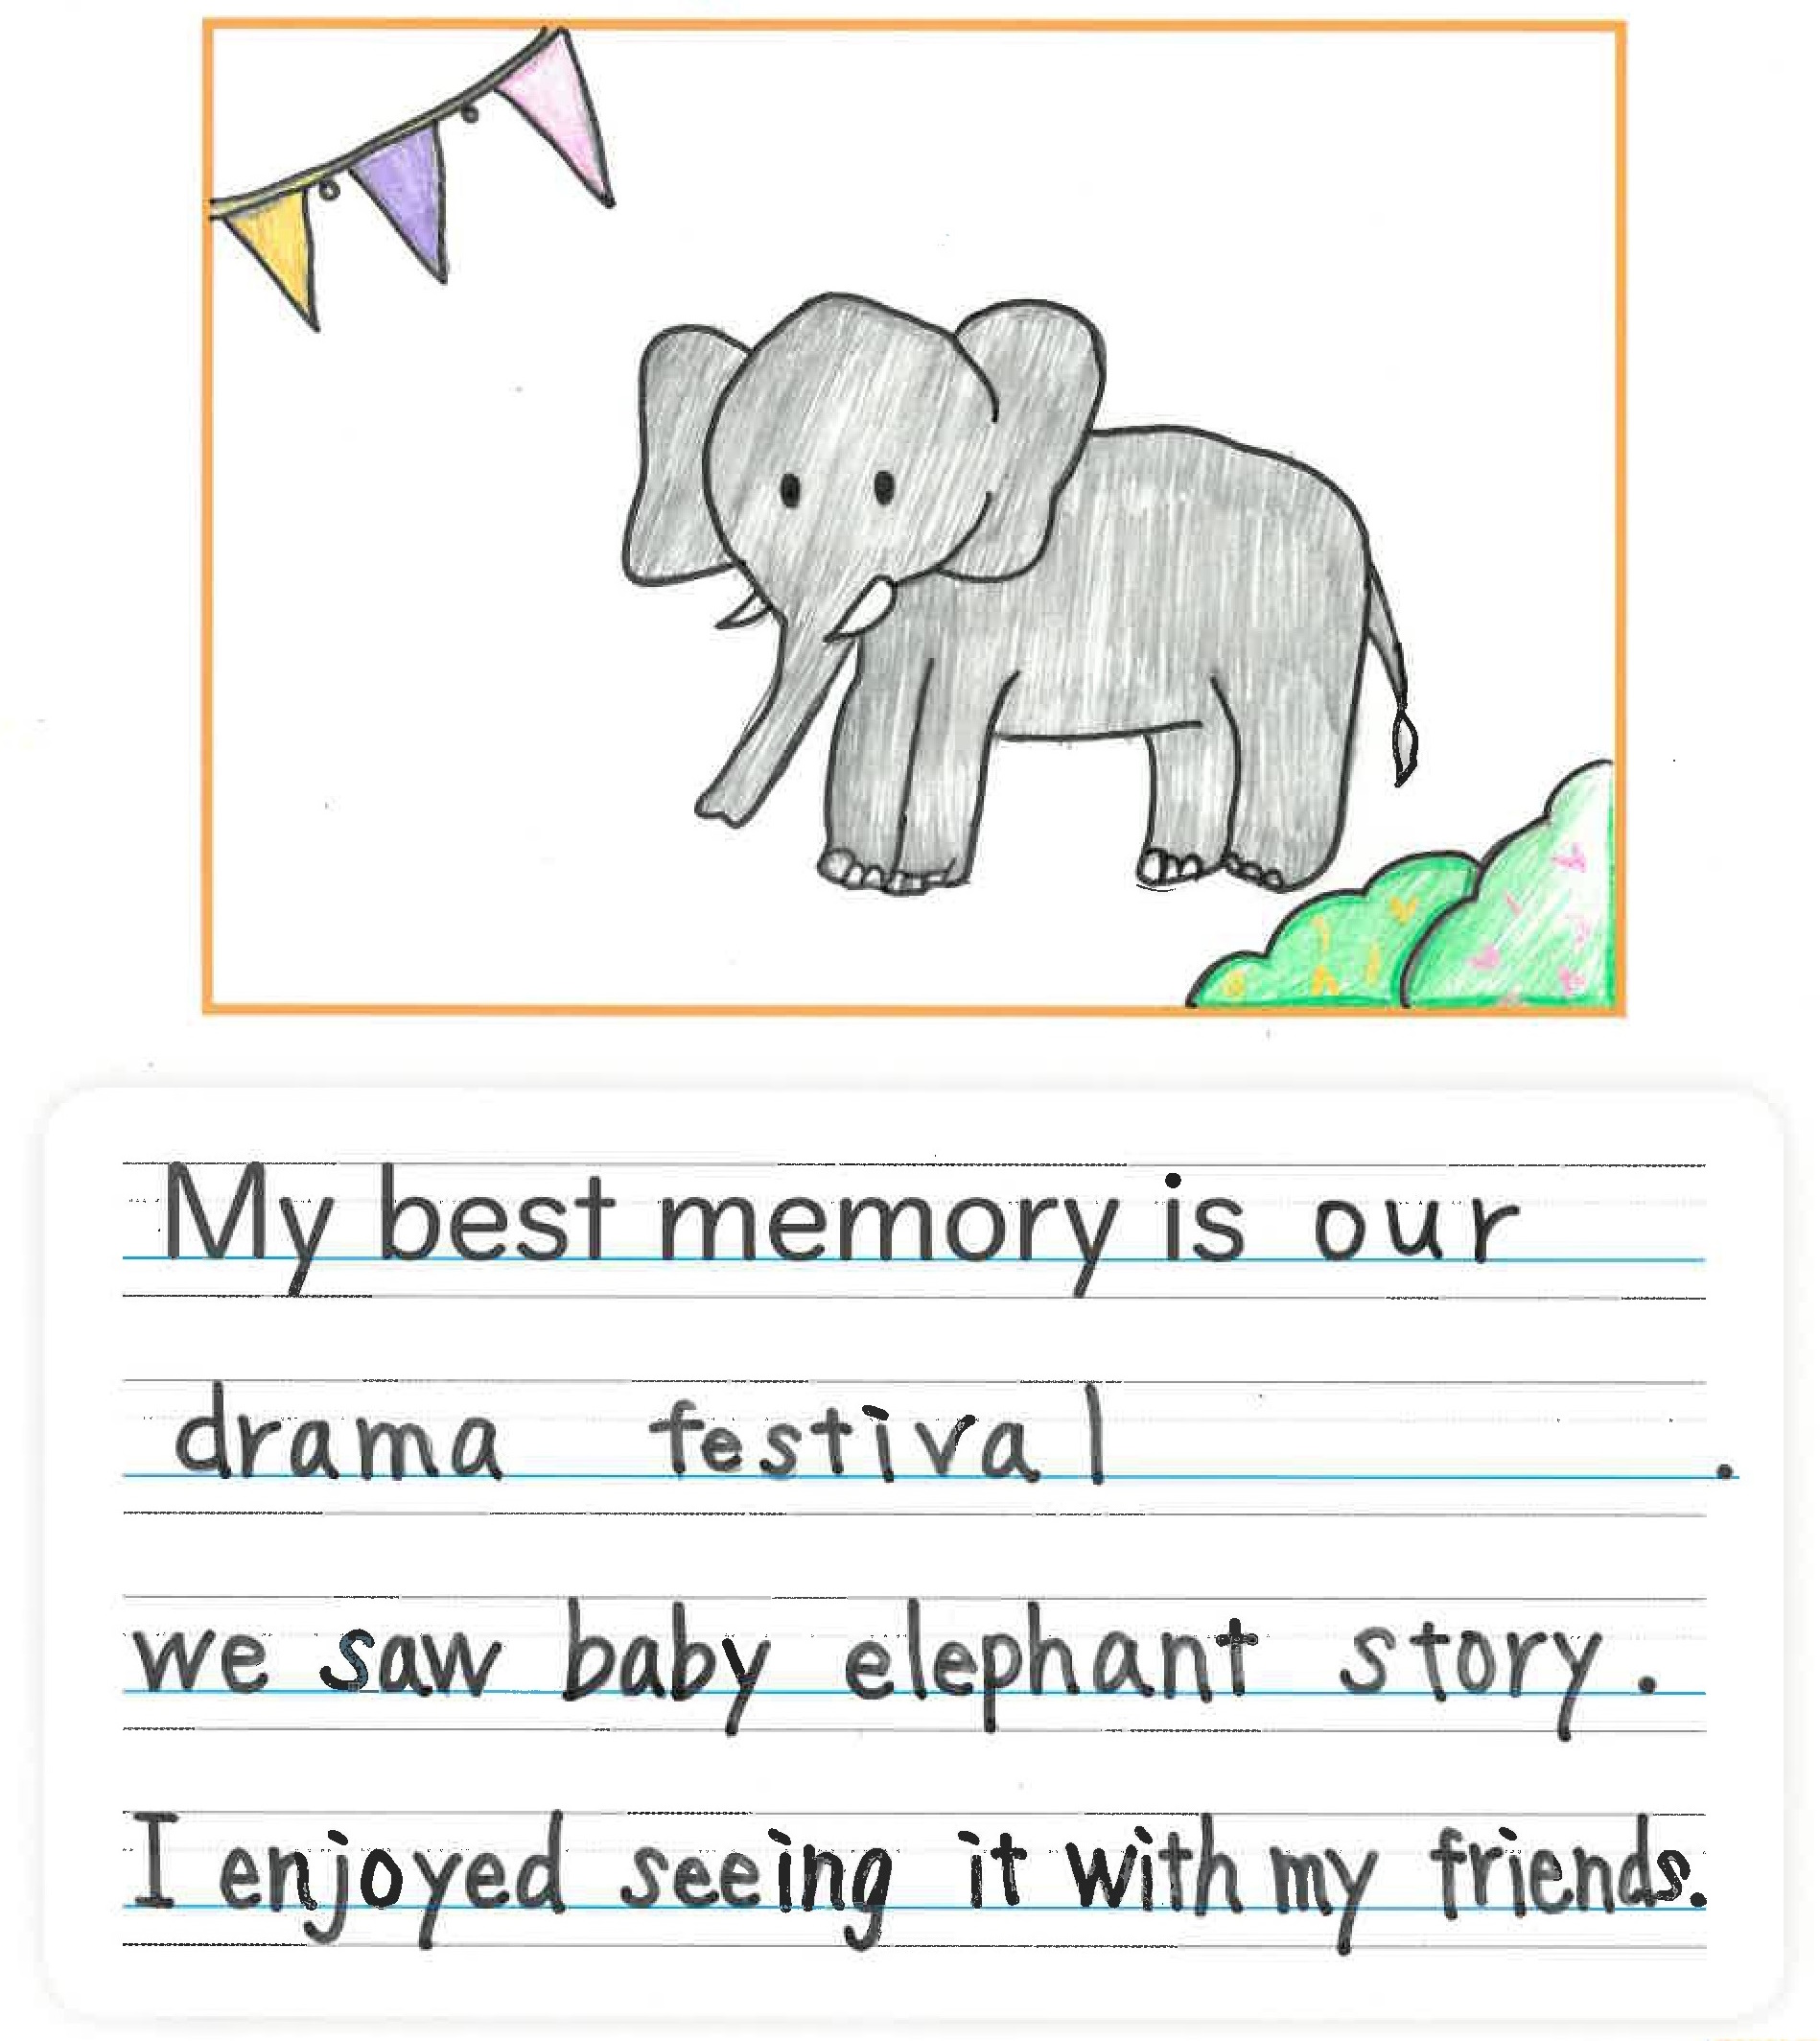 My best memory is our
drama festival .
we saw baby elephant story.
I enjoyed seeing it with my friends.